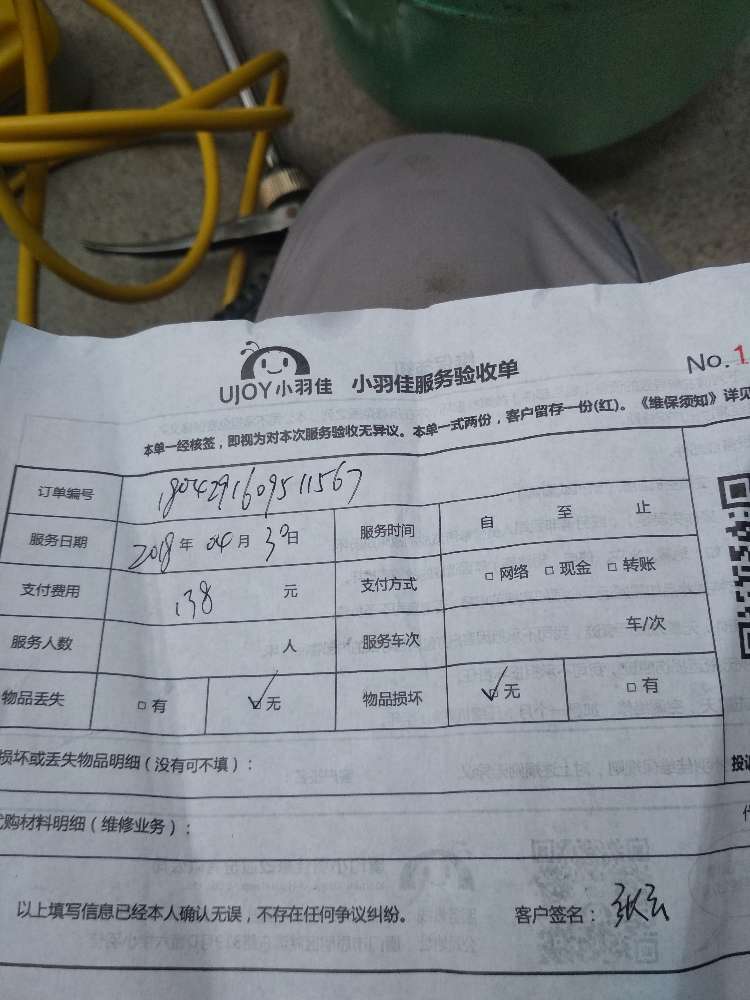 UJOY小羽佳 小羽佳服务验收单 No.1
本单一经核签，即视为对本次服务验收无异议。本单一式两份，客户留存一份(红)。《维保须知》详见
订单编号 1804291609511567
服务日期 2018年 04月 30日 服务时间 自 至 止
支付费用 138 元 支付方式 □ 网络 □ 现金 □ 转账
服务人数 人 服务车次 车/次
物品丢失 □ 有 ✓□ 无 物品损坏 ✓□ 无 □ 有
损坏或丢失物品明细（没有可不填）： 投诉
购材料明细（维修业务）：
以上填写信息已经本人确认无误，不存在任何争议纠纷。 客户签名：张云